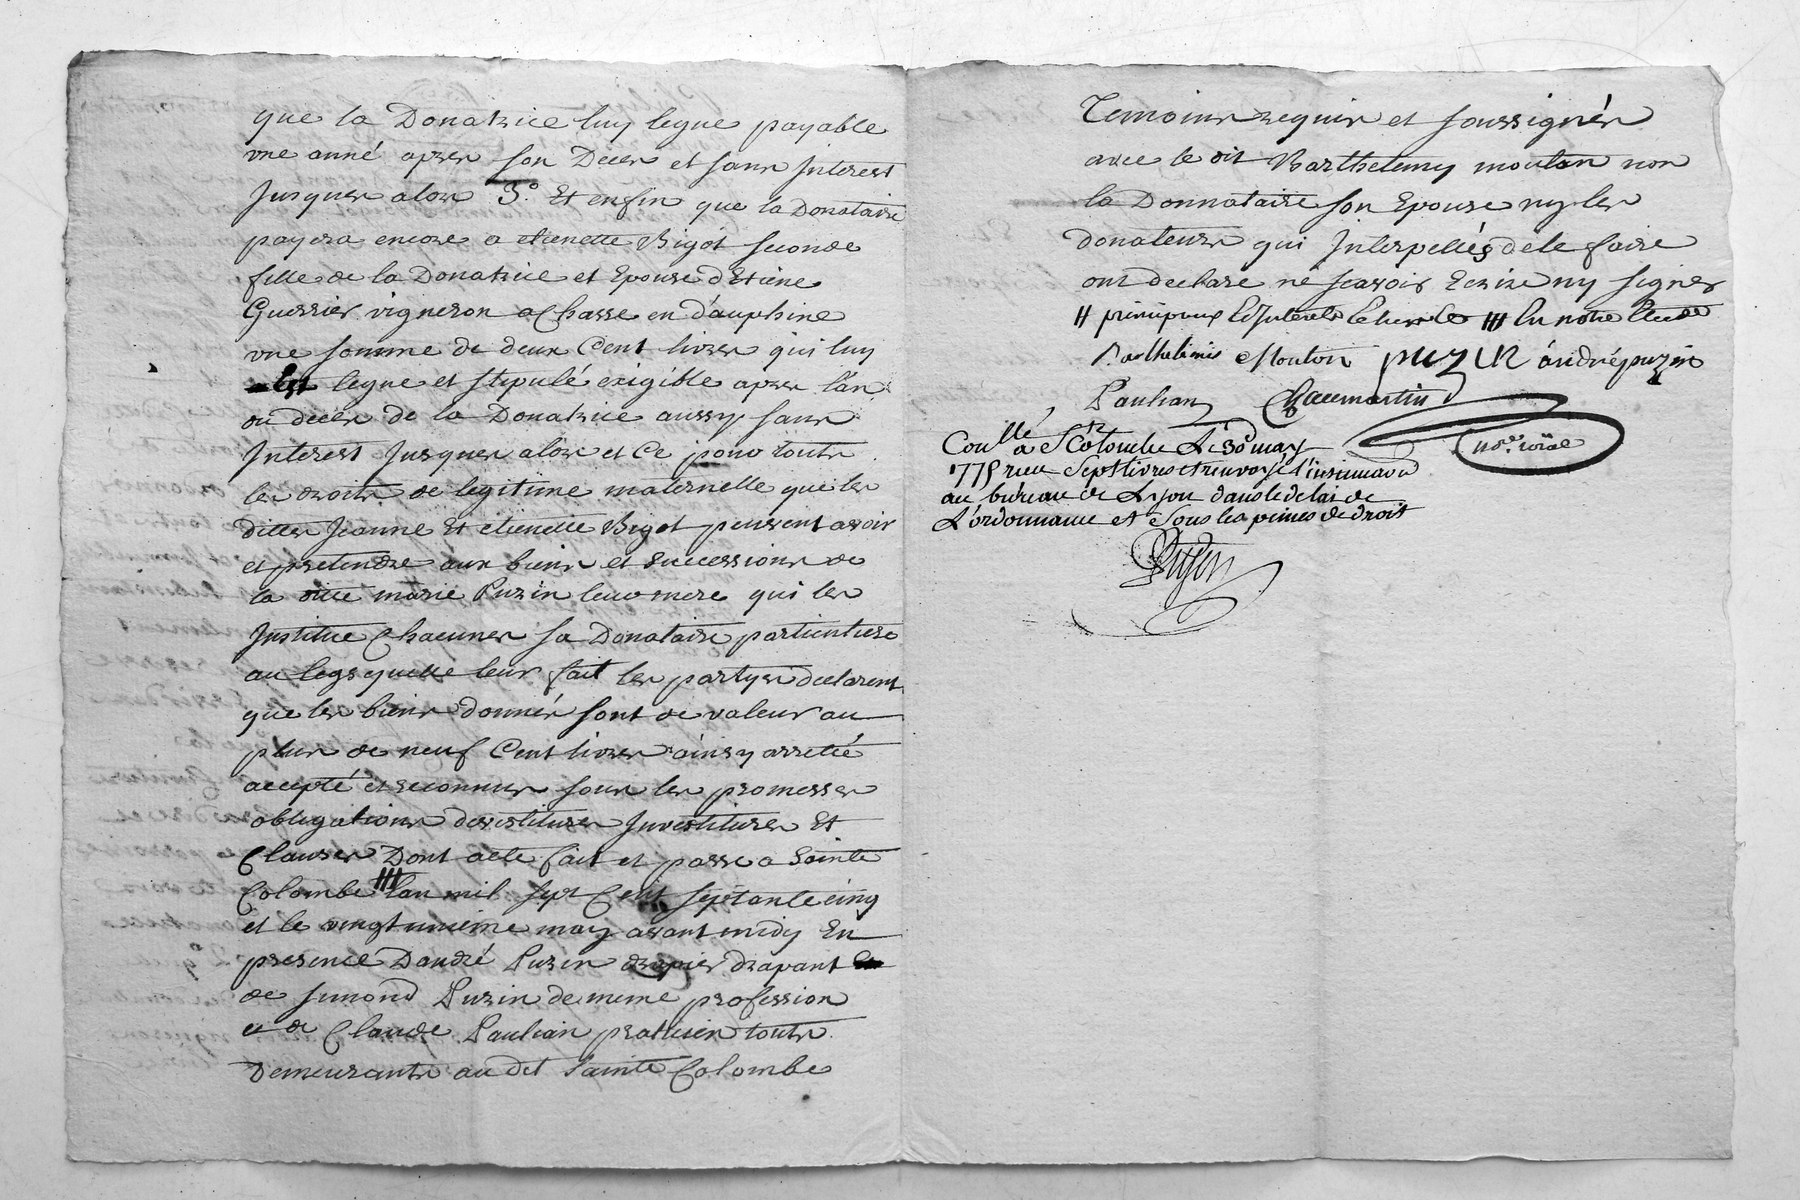 que la Donatrice luy legue payable
vne anné apres son Deces et sans Interest
Jusques alors 3.° Et enfin que la Donataire
payera encore a etienette Bigot seconde
fille de la Donatrice et Epouse d'Etiene
Guerrier vigneron a Chasse en dauphine
vne somme de deux Cent livres qui luy
est legué et stipulé exigible apres l'an
du deces de la Donatrice aussy sans
Interest Jusques alors et Ce pour touts
les droits de legitime maternelle que les
dittes Jeanne Et etienette Bigot peuvent avoir
et pretendre aux biens et successions de
la ditte marie Puzin leur mere qui les
Institue Chacunes sa Donataire particuliere
au legs quelle leur fait les partyes declarent
que les biens donnés sont de valeur au
plus de neuf Cent livres ainsy arretté
accepté et reconnus sous les promesses
obligations devestitures Investitures Et
Clauses Dont acte fait et passe a Sainte
Colombe //// lan mil sept Cent septante cinq
et le vingtunieme may avant midy En
presence Dandré Puzin drapier drapant
de simond Puzin de meme profession
et de Claude Paulian praticien touts
Demeurants au dit Sainte Colombe
Temoins requis et soussignés
avec le dit Barthelemy mouton non
la Donnataire son Epouse ny les
donateurs qui Interpellés de le faire
ont declaré ne scavoir Ecrire ny signer
// principaux /// en notre Etude
Barthelimis Mouton puzin andré puzin
Paulian Chaumartin
no.re roial
Con.llé a S.te Colombe Le 30 may
1775 recu sept livres et renvoyé l'insinuaon
au bureau de Lyon dans le delai de
L'ordonnance et sous les peines de droit